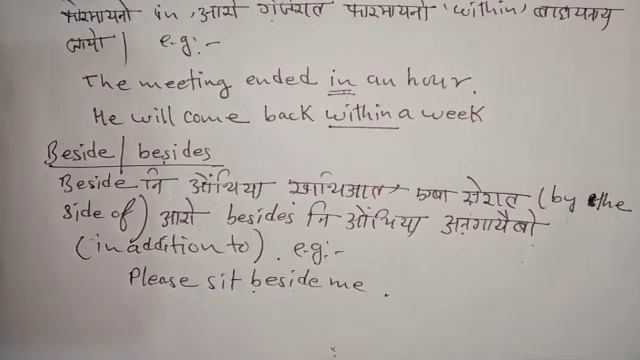 फोरमायनो in, आरो गुजंरात फोरमायनो 'within' बाहायनाय
जायो | e.g:-
The meeting ended in an hour.
He will come back within a week
Beside | besides
Beside नि ओंथिया खाथिआत, एबा सेरात (by the
side of) आरो besides नि ओंथिया अनंगायैबो
(in addition to). e.g:-
Please sit beside me.